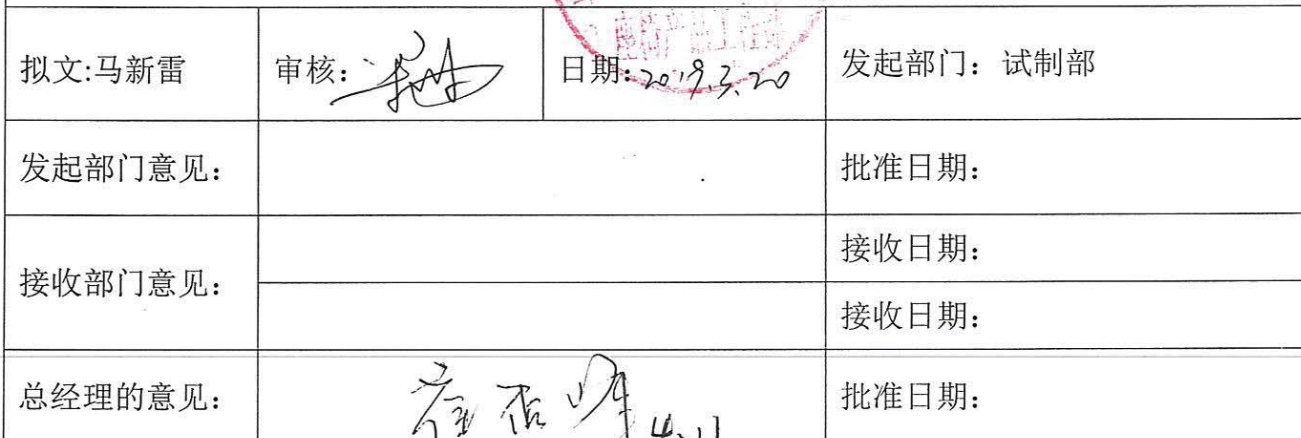 拟文:马新雷 审核: 日期:2019.3.20 发起部门：试制部
发起部门意见： 批准日期：
接收部门意见： 接收日期：
接收日期：
总经理的意见： 批准日期：